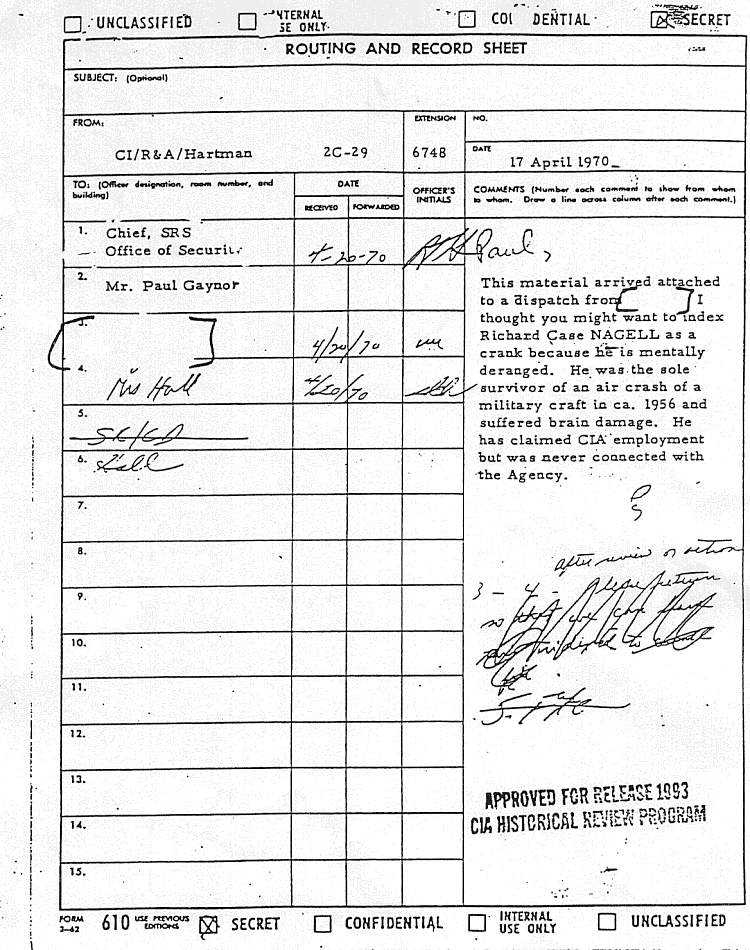 UNCLASSIFIED NTERNAL SE ONLY CO DENTIAL SECRET
ROUTING AND RECORD SHEET
SUBJECT: (Optional)
FROM:
CI/R&A/Hartman 2C-29
EXTENSION
6748
NO.
DATE
17 April 1970
TO: (Officer designation, room number, and building)
DATE
RECEIVED FORWARDED
OFFICER'S INITIALS
COMMENTS (Number each comment to show from whom
to whom. Draw a line across column after each comment.)
1. Chief, SRS
Office of Securit
4-20-70
Paul,
2. Mr. Paul Gaynor
This material arrived attached
to a dispatch from [ ] I
thought you might want to index
Richard Case NAGELL as a
crank because he is mentally
deranged. He was the sole
survivor of an air crash of a
military craft in ca. 1956 and
suffered brain damage. He
has claimed CIA employment
but was never connected with
the Agency.
3.
4/20/70
4. Mrs Hall
4/20/70
5.
6.
7.
8.
9.
10.
11.
12.
13.
14.
15.
after review or action
3 - 4 - please return
APPROVED FOR RELEASE 1993
CIA HISTORICAL REVIEW PROGRAM
FORM 3-62 610 USE PREVIOUS EDITIONS SECRET CONFIDENTIAL INTERNAL USE ONLY UNCLASSIFIED